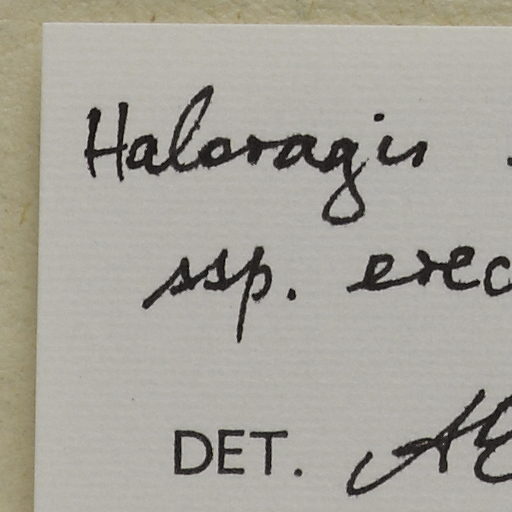 Haloragis
ssp. erec
DET. AE